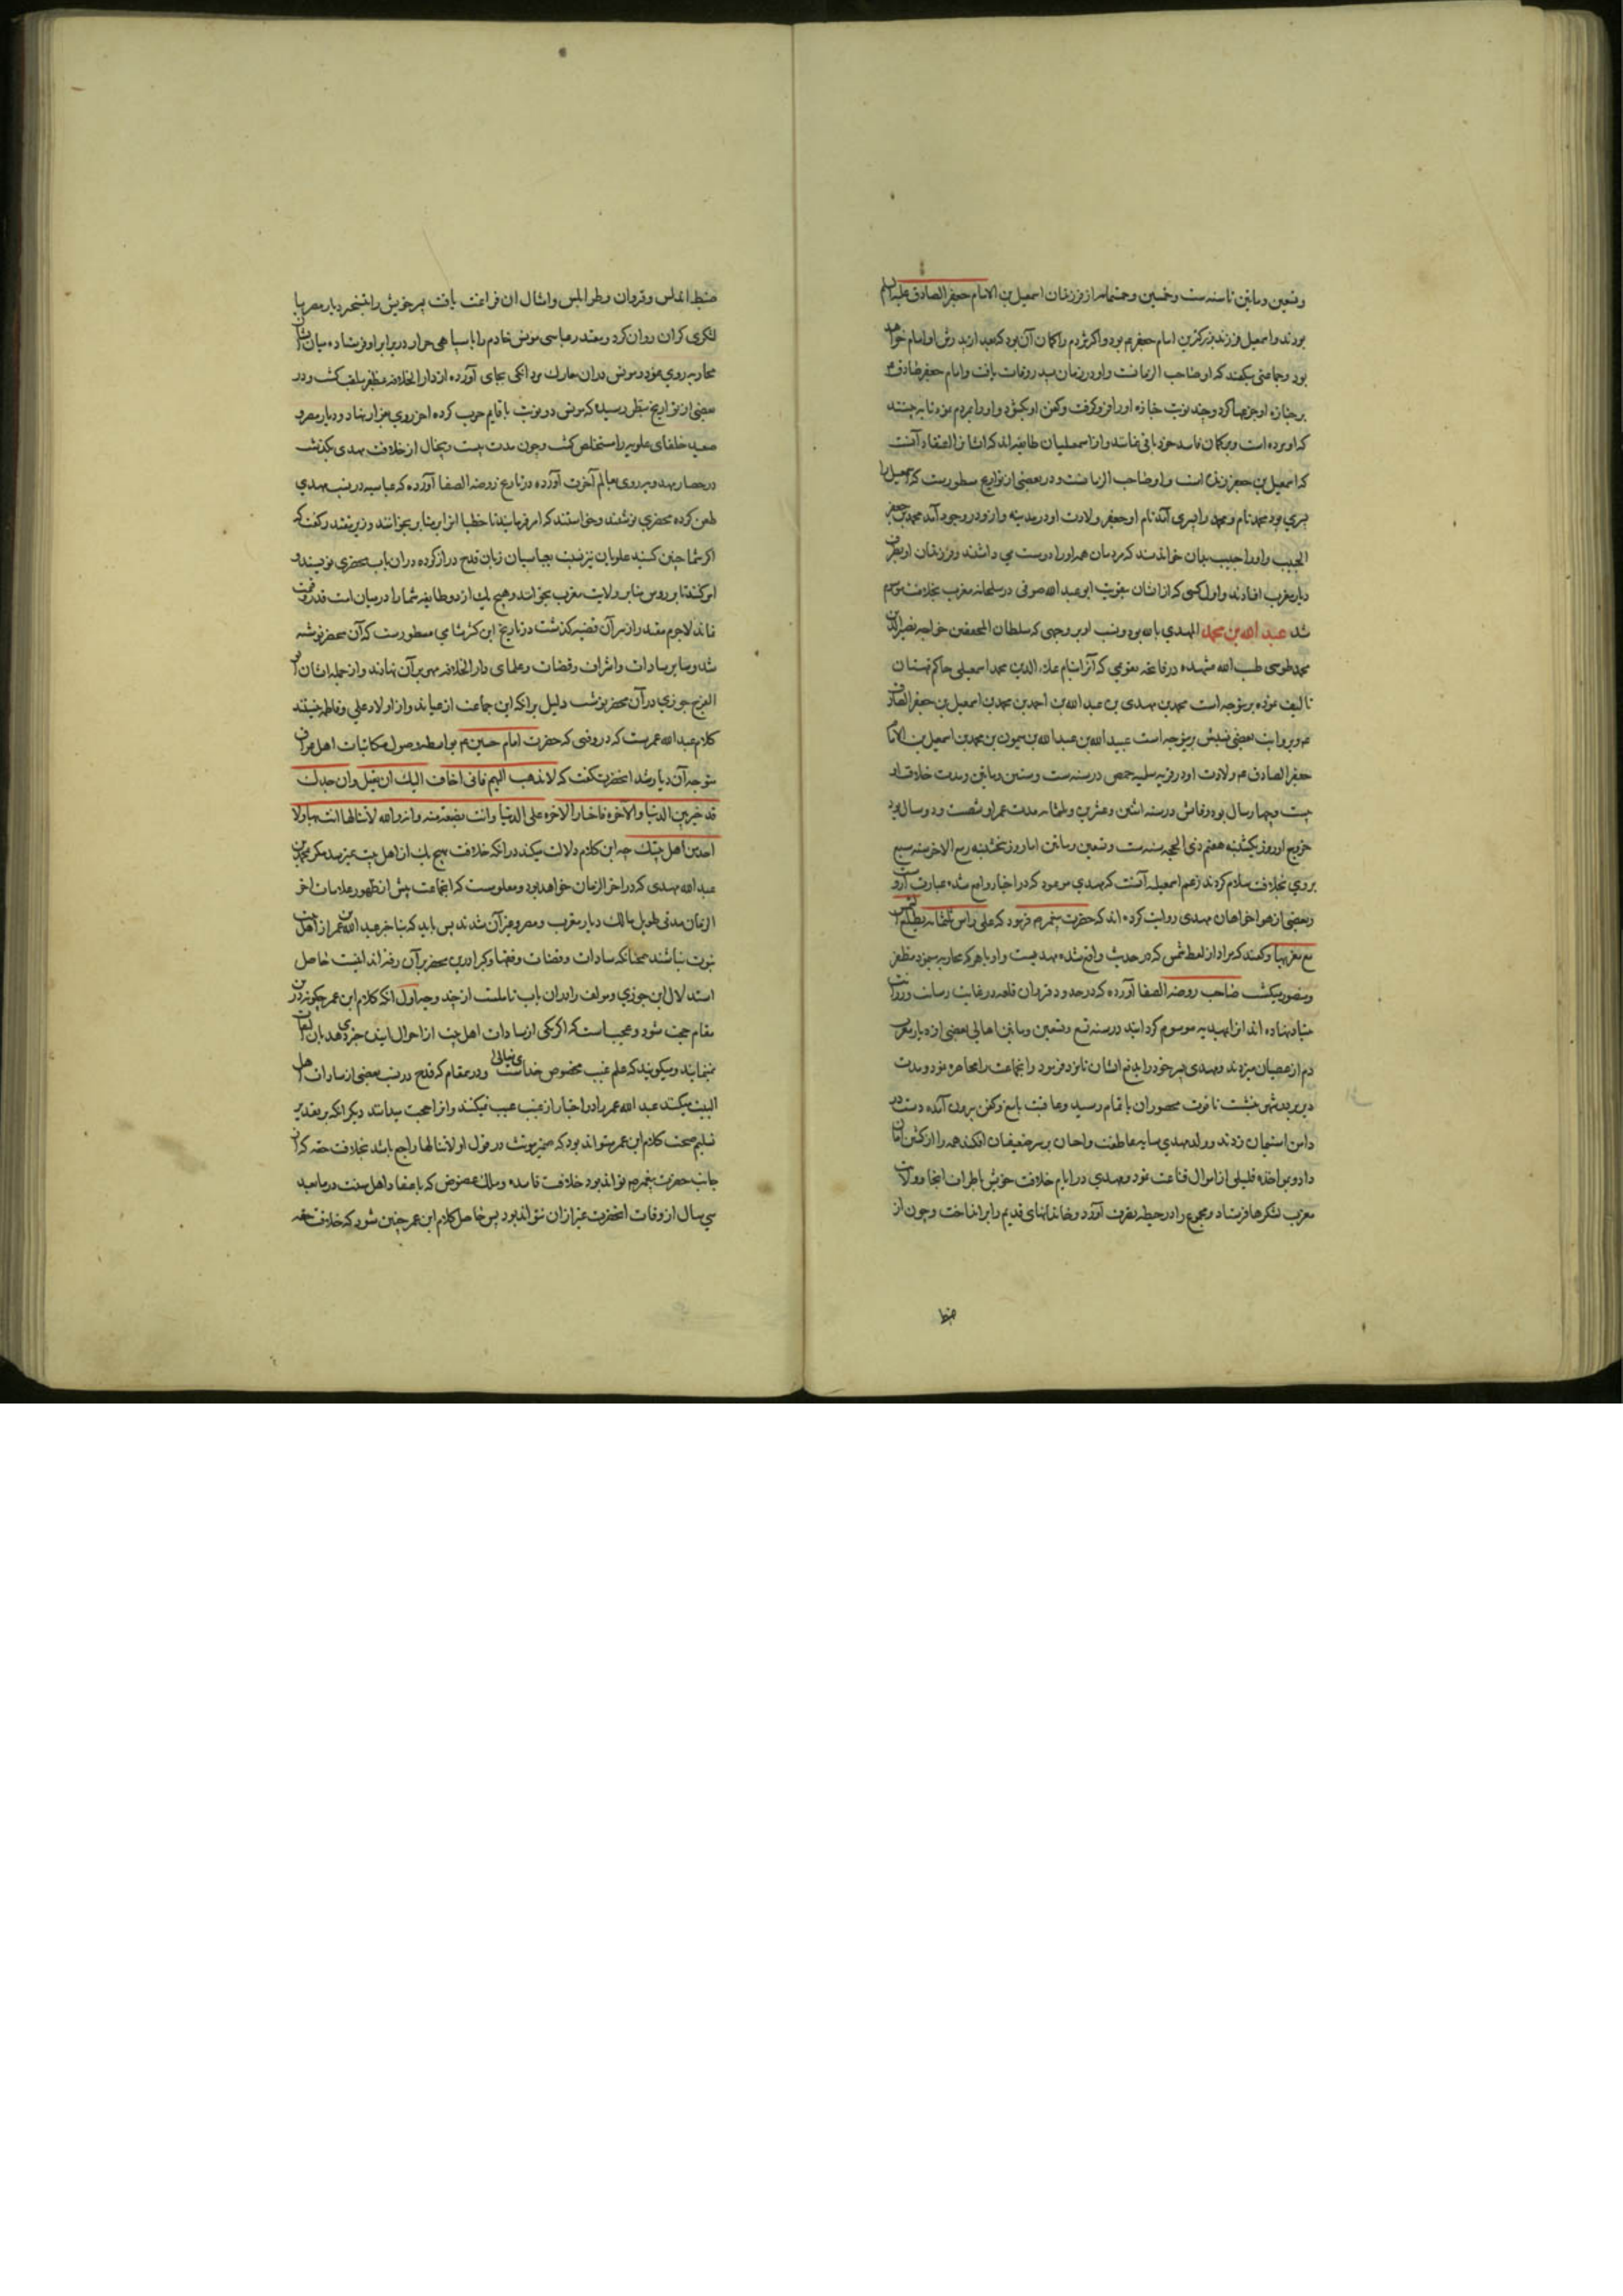 وتسعین ومایتین تا سنه ست وخمسین وخمسمایه از فرزندان اسمعیل بن الامام جعفر الصادق علیه السلم
بودند واسمعیل فرزند بزرکترین امام جعفر بود واکثر مردم را کمان آن بود که بعد از پدرش او امام خواهد
بود وجماعتی میکفتند که او صاحب الزمانست واو در زمان پدر وفات یافت وامام جعفر صادق
بر جنازه او جزعها کرد وچند نوبت جنازه او را فرو کرفت وکفن او بکشود واو را بمردم نمود تا به بینند
که او مرده است وبرکمان فاسد خود باقی نمانند واز اسمعیلیان طایفه اند که اعتقاد آنست
که اسمعیل بن جعفر زنده است واو صاحب الزمانست ودر بعضی از تواریخ مسطورست که اسمعیل را
پسری بود محمد نام ومحمد را پسری آمد نام او جعفر ولادت او در مدینه واز او در وجود آمد محمد بن جعفر
الحبیب واو را حبیب بدان خواندند که مردمان همه او را دوست می داشتند وفرزندان او بطرف
دیار مغرب افتادند واول کسی که از ایشان بتقویت ابو عبد الله صوفی در سلجمانه مغرب بخلافت موسوم
شد عبد الله بن محمد المهدی بالله بود ونسب او بر وجهی که سلطان المحققین خواجه نصیر الدین
محمد طوسی طیب الله مشهده در قاعده تقویمی که آنرا بنام علاء الدین محمد اسمعیلی حاکم قهستان
تالیف نموده برینوجه است محمد بن مهدی بن عبد الله بن احمد بن محمد بن اسمعیل بن جعفر الصادق
وبروایت بعضی نسبش برینوجه است عبید الله بن عبد الله بن میمون بن محمد بن اسمعیل بن الامام
جعفر الصادق ولادت او در قریه سلمیه حمص در سنه ست وستین ومایتین ومدت خلافت او
بیست وچهار سال بود وفاتش در سنه اثنین وعشرین وثلثمایه مدت عمر او شصت ودو سال بود
خروج او روز یکشنبه هفتم ذی الحجه سنه ست وتسعین ومایتین اما روز پنجشنبه ربیع الاخر سنه سبع
بروی بخلافت سلام کردند زعم اسمعیلیه آنست که مهدی موعود که در اخبار واقع شده عبارت از وست
وبعضی از هواخواهان مهدی روایت کرده اند که حضرت پیغمبر فرمود که علی راس ثلثمایه یطلع الشمس
من مغربها وکفتند که مراد از لفظ شمس که در حدیث واقع شده مهدیست واو با هر که محاربه میبرد مظفر
ومنصور میکشت صاحب روضه الصفا آورده که در حدود قیروان قلعه در غایت رصانت ورزانت
بنیاد نهاده اند انرا بمهدیه موسوم کردانید در سنه تسع وتسعین ومایتین اهالی بعضی از دیار مغرب
دم از عصیان میزدند ومهدی پسر خود را بدفع ایشان نامزد فرمود وانجماعت را محاصره نمود ومدت
تا قوت محصوران باتمام رسید وعاقبت باتیغ وکفن بیرون آمده دست در
دامن استیمان زدند وولد مهدی سایه عاطفت واحسان بر سر ضعیفان افکند همه را از کشتن امان
داد وبر اخذ قلیلی از اموال قناعت نمود ومهدی در ایام خلافت خویش باطراف انجا وولایت
مغرب لشکرها فرستاد ومجموع را در حیطه تصرف آورد وخاندانهای قدیم را برانداخت وچون از
ضبط
ضبط اندلس وقیروان وطرابلس وامثال ان فراغت یافت پسر خویش را بتسخیر دیار مصر با
لشکری کران روان کرد ومقتدر عباسی مونس خادم را با سپاهی جرار در برابر او فرستاده میان ایشان
محاربه روی نمود ومونس دران معارک مردانکی بجای آورده از دار الخلافه مظفر ملقب کشت ودر
بعضی از تواریخ بنظر رسیده که مونس دو نوبت با قایم حرب کرده اخر روی بفرار نهاد ودیار مصر و
صعید خلفای علویه را استخلص کشت وچون مدت بیست وپنجسال از خلافت مهدی بکذشت
در حصار مهدیه روی بعالم آخرت آورد در تاریخ روضه الصفا آورده که عباسیه در نسب مهدی
طعن کرده محضری نوشتند وخواستند که امر فرمایند تا خطبا انرا بر منابر بخوانند وزیر مقتدر کفت که
اکر شما چنین کنید علویان نیز نسبت بعباسیان زبان قدح دراز کرده دران باب محضری نویسند و
امر کنند تا بر رؤس منابر ولایت مغرب بخوانند وهیچ یک از دو طایفه شما را در میان امت قدر وقیمت
نماند لاجرم مقتدر از سر آن قضیه کذشت در تاریخ ابن کثیر شامی مسطورست که آن محضر نوشته
شد وسایر سادات واشراف وقضات وعلمای دار الخلافه مهر بر آن نهادند واز جمله ایشان ابو
الفرج جوزی در آن محضر نوشت دلیل برانکه این جماعت ادعیا اند واز اولاد علی وفاطمه نیستند
کلام عبد الله عمرست که در وقتی که حضرت امام حسین بواسطه وصول مکاتبات اهل عراق
متوجه آن دیار شد انحضرت کفت که لا تذهب الیهم فانی اخاف الیک ان تقتل وان جدک
قد خیر بین الدنیا والآخره فاختار الاخره علی الدنیا وانت بضعه منه وانه والله لا تنالها انت ولا
احد من اهل بیتک چه این کلام دلالت میکند در انکه خلافت بهیچ یک از اهل بیت نمیرسد مکر محمد بن
عبد الله مهدی که در اخر الزمان خواهد بود ومعلومست که انجماعت پیش از ظهور علامات اخر
الزمان مدتی طویل مالک دیار مغرب ومصر وغیر آن شدند پس باید که بنابر خبر عبد الله بن عمر از اهل بیت
نبوت نباشند همچنانکه سادات وقضات وفقها وکبرا درین محضر بر آن رفته اند اینست حاصل
استدلال ابن جوزی ومولف را دران باب تاملست از چند وجه اول انکه کلام ابن عمر چکونه درین
مقام حجت شود وعجب است که اکر یکی از سادات اهل بیت از احوال اینده خبری دهد بآن التفات
نمینمایند ومیکویند که علم غیب مخصوص خدای تعالی است ودر مقام که قدح در نسب بعضی از سادات اهل
البیت میکنند عبد الله عمر را در اخبار از غیب عیب نمیکنند وانرا حجت میدانند دیکر انکه بر تقدیر
تسلیم صحت کلام ابن عمر میتواند بود که ضمیر مونث در قول او لا تنالها راجع باشد بخلافت حقه که از
جانب حضرت پیغمبر تواند بود خلافت فاسده وملک عضوض که باعتقاد اهل سنت در ما بعد
سی سال از وفات انحضرت غیر از ان نتواند بود پس حاصل کلام ابن عمر چنین شود که خلافت حقه